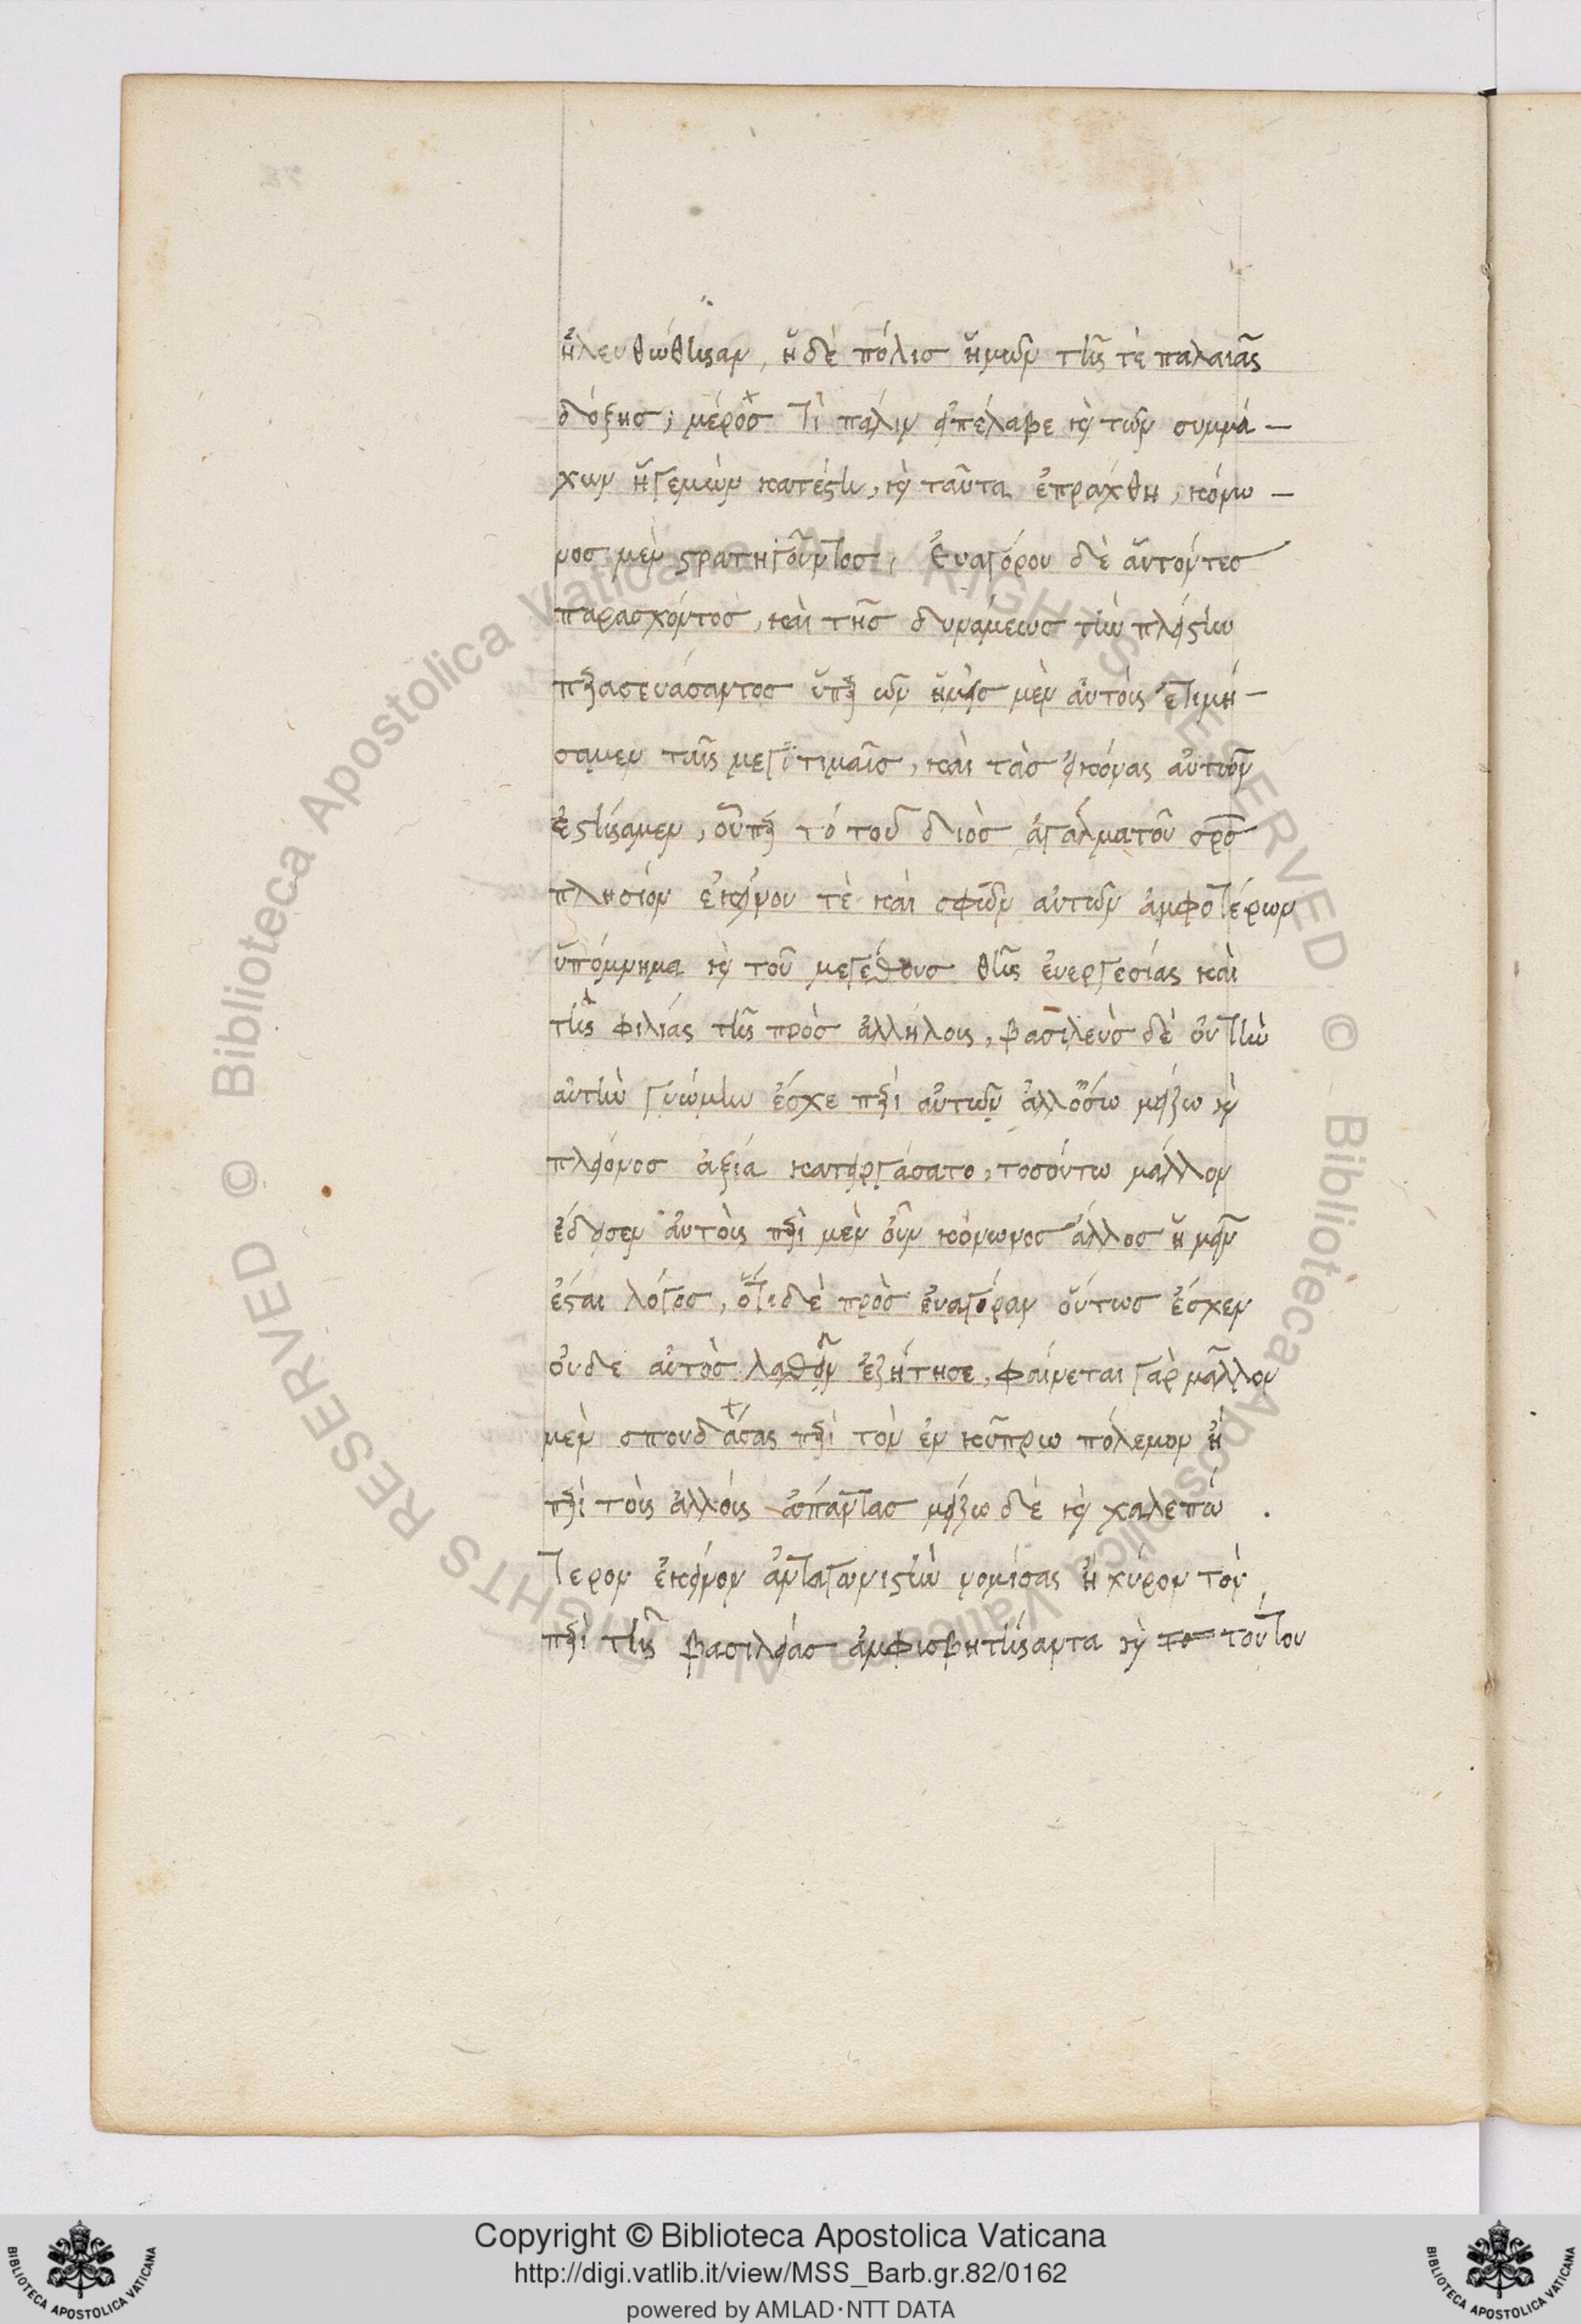 ἠλευθώθησαν, ἡ δὲ πόλισ ἡμῶν τῆς τὲ παλαιᾶς
δόξησ; μέροσ τὶ πάλιν ἀπέλαβε κὶ τῶν συμμά-
χων ἡγεμὼν κατέστη, κὶ ταῦτα ἐπράχθη, κόνω-
νοσ μὲν στρατηγοῦντος, Ἐυαγόρου δὲ ἁυτόντεσ
παρασχόντοσ, καὶ τῆσ δυνάμεωσ τὴν πλείστην
παρασκευάσαντοσ ὑπὲρ ὧν ἡμεῖσ μὲν ἀυτὸις ἐτιμή-
σαμεν ταῖς μεγίτιμαῖσ, καὶ τὰσ εἰκόνας αὐτῶν
ἐστήσαμεν, οὗπερ τό τοῦ διὸσ ἀγάλματοῦ σρ̅σ
πλησιόν ἐκείνου τὲ καὶ σφῶν αὐτῶν ἀμφοτέρων
ὑπόμνημα κὶ τοῦ μεγέθουσ θῆς ἐυεργεσίας καὶ
τῆς φιλιάς τῆς πρὸσ ἀλλήλοις, βασιλεὺσ δὲ ὀυ τὴν
αὐτὴν γνώμην ἔσχε περὶ αὐτῶν ἀλλ' ὅσω μείζω κὶ
πλείονοσ ἀξιά κατειργάσατο, τοσόυτω μάλλον
ἔδεισεν ἀυτὸις περὶ μὲν ὀῦν κόνωνοσ ἄλλοσ ἡμεῖν
ἔσται λόγοσ, ὅτι δὲ πρὸσ ἐυαγόραν ὅυτωσ ἔσχεν
ὀυδε αὐτὸσ λαθεῖν ἐζήτησε, φαίνεται γὰρ μᾶλλον
μὲν σπουδάσας περὶ τὸν ἐν κύπρω πόλεμον ἢ
περὶ τὸις ἀλλόις ἁπάντασ μείζω δὲ κὶ χαλεπώ .
τερον ἐκεῖνον ἀνταγωνιστὴν νομίσας ἢ κύρον τὸν
περὶ τῆς βασιλείασ ἀμφισβητήσαντα κὶ το τούτου
Copyright © Biblioteca Apostolica Vaticana
http://digi.vatlib.it/view/MSS_Barb.gr.82/0162
powered by AMLAD·NTT DATA